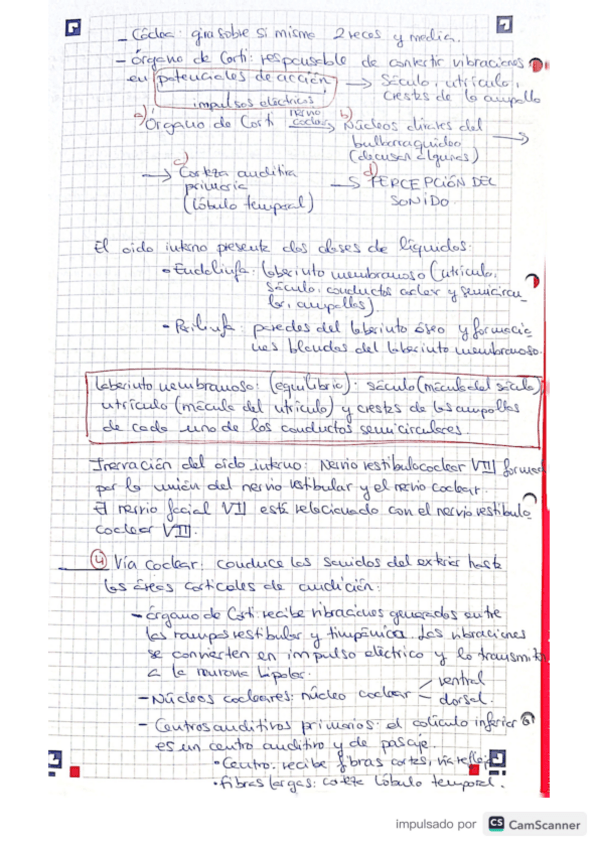 - Cóclea: gira sobre si misma 2 veces y media.
- Órgano de Corti: responsable de convertir vibraciones
en potenciales de acción → Sáculo, utrículo,
impulsos eléctricos crestas de la ampolla
a) Órgano de Corti nervio coclear → b) Núcleos del
bulborraquídeo →
(decusan algunas)
→ c) Corteza auditiva → d) PERCEPCIÓN DEL
primaria SONIDO
(lóbulo temporal)
El oido interno presenta dos clases de líquidos:
• Endolinfa: laberinto membranoso (utrículo,
sáculo, conductos coclear y semicircu
lar, ampollas).
• Perilinfa: paredes del laberinto óseo y formacio
nes blandas del laberinto membranoso.
Laberinto membranoso: (equilibrio): sáculo (mácula del sáculo),
utrículo (mácula del utrículo) y crestas de las ampollas
de cada uno de los conductos semicirculares.
Inervación del oido interno: Nervio vestibulococlear VIII formado
por la unión del nervio vestibular y el nervio coclear.
El nervio facial VII está relacionado con el nervio vestíbulo
coclear VIII.
4 Vía coclear: conduce los sonidos del exterior hasta
las áreas corticales de audición:
- órgano de Corti: recibe vibraciones generadas entre
las rampas vestibular y timpánica. Las vibraciones
se convierten en impulso eléctrico y lo transmite
a la neurona bipolar.
- Núcleos cocleares: núcleo coclear < ventral
dorsal.
- Centros auditivos primarios: el colículo inferior
es un centro auditivo y de pasaje.
• Centro: recibe fibras cortas, vía refleja
• Fibras largas: corteza lóbulo temporal.
impulsado por CS CamScanner